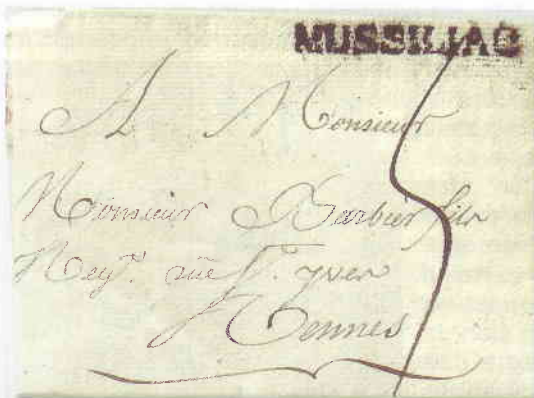 MUSSILIAC
A Monsieur
Monsieur Barbier fils
Neg.t rue S.t yves
Rennes
5